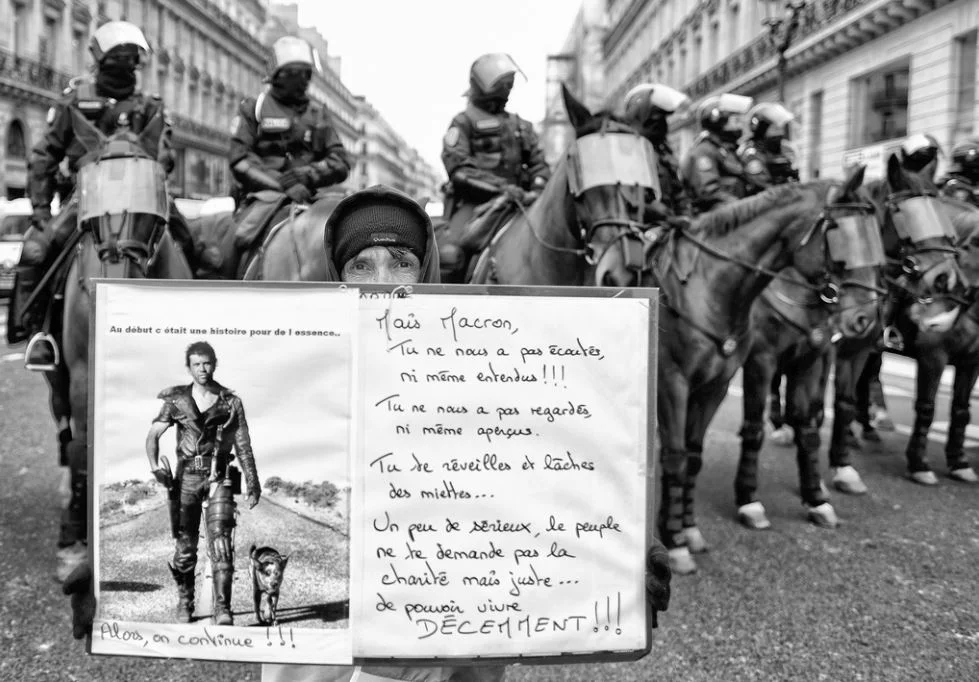 Au début c était une histoire pour de l essence..
Alors, on continue !!!
Mais Macron,
Tu ne nous a pas écoutés,
ni même entendus !!!
Tu ne nous a pas regardés,
ni même aperçus.
Tu te réveilles et lâches
des miettes...
Un peu de sérieux, le peuple
ne te demande pas la
charité mais juste...
de pouvoir vivre
DÉCEMMENT !!!